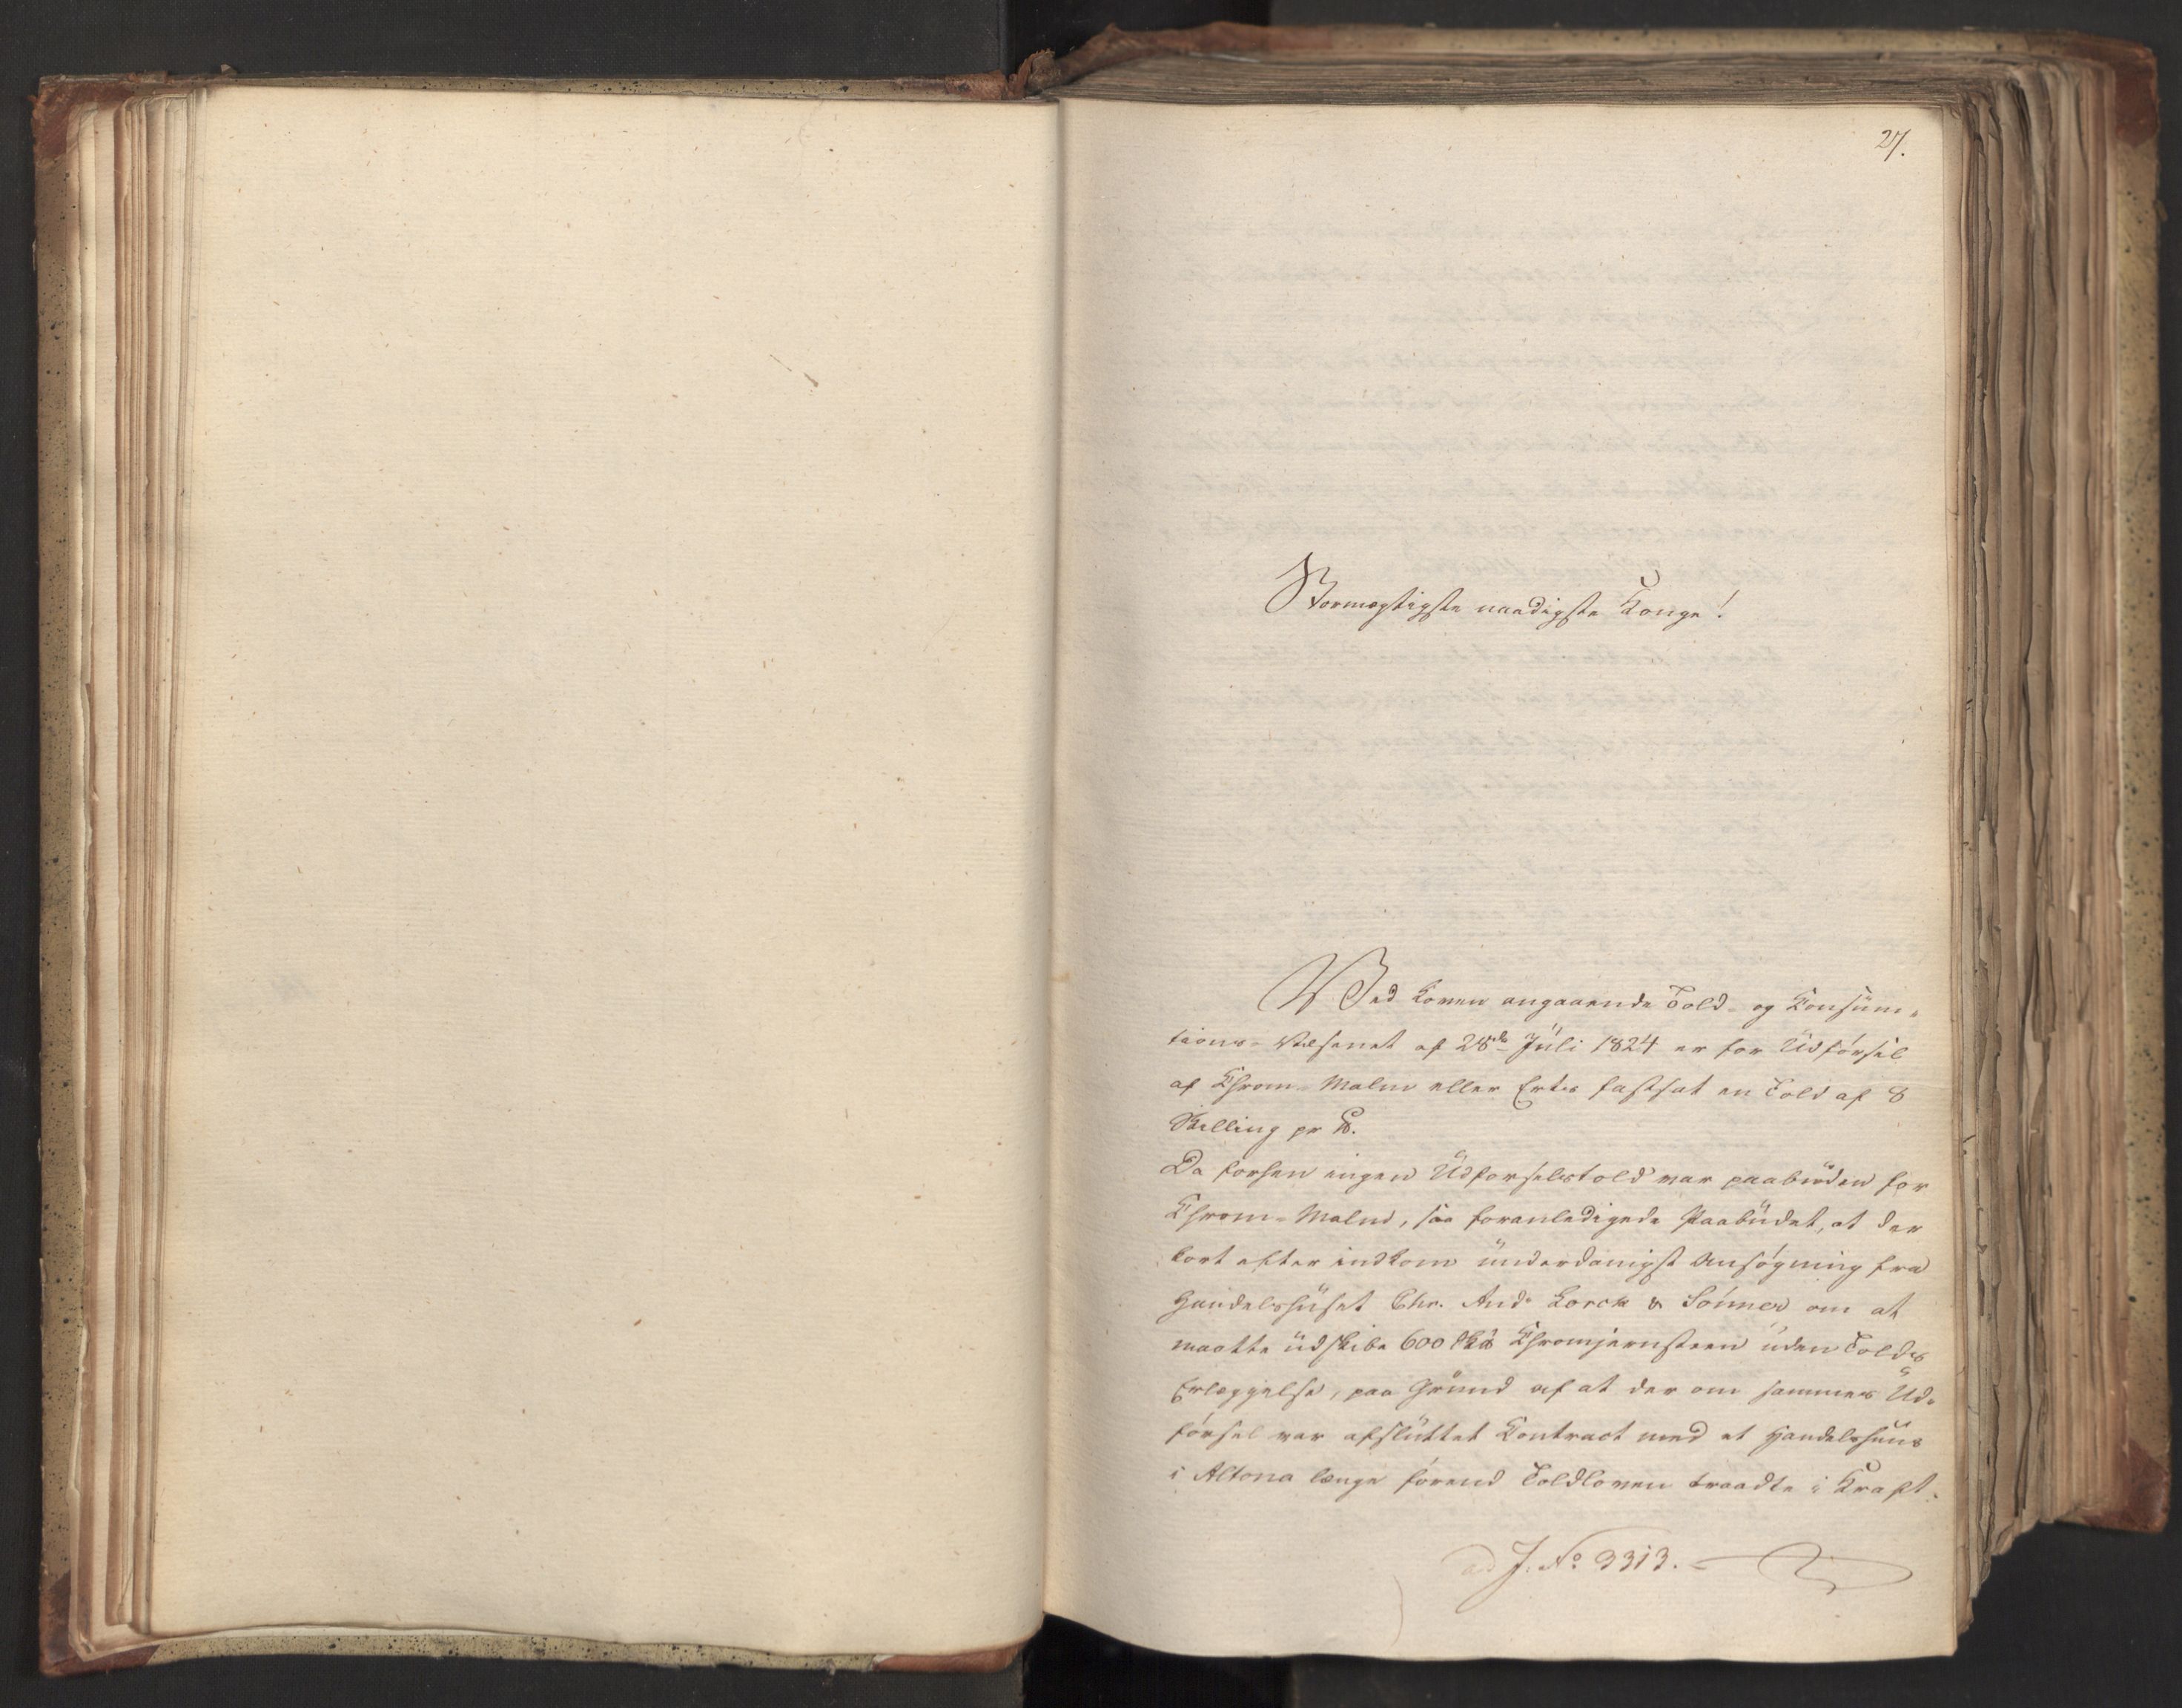 27.
Stormægtigste naadigste Konge!
Ved Loven angaaende Told- og Konsum-
tions-Væsenet af 28de Juli 1824 er for Udførsel
af Chrom-Malm eller Erts fastsat en Told af 8
Skilling pr ℔.
Da forhen ingen Udførselstold var paabuden for
Chrom-Malm, saa foranledigede Paabudet, at der
kort efter indkom underdanigst Ansøgning fra
Handelshuset Chr. And. Lorck & Sönner om at
maatte udskibe 600 Chromjernsteen uden Tolds
Erlæggelse, paa Grund af at der om sammes Ud-
førsel var afsluttet Contract med et Handelshuus
i Altona længe førend Toldloven traadte i Kraft.
ad J. No 3313.